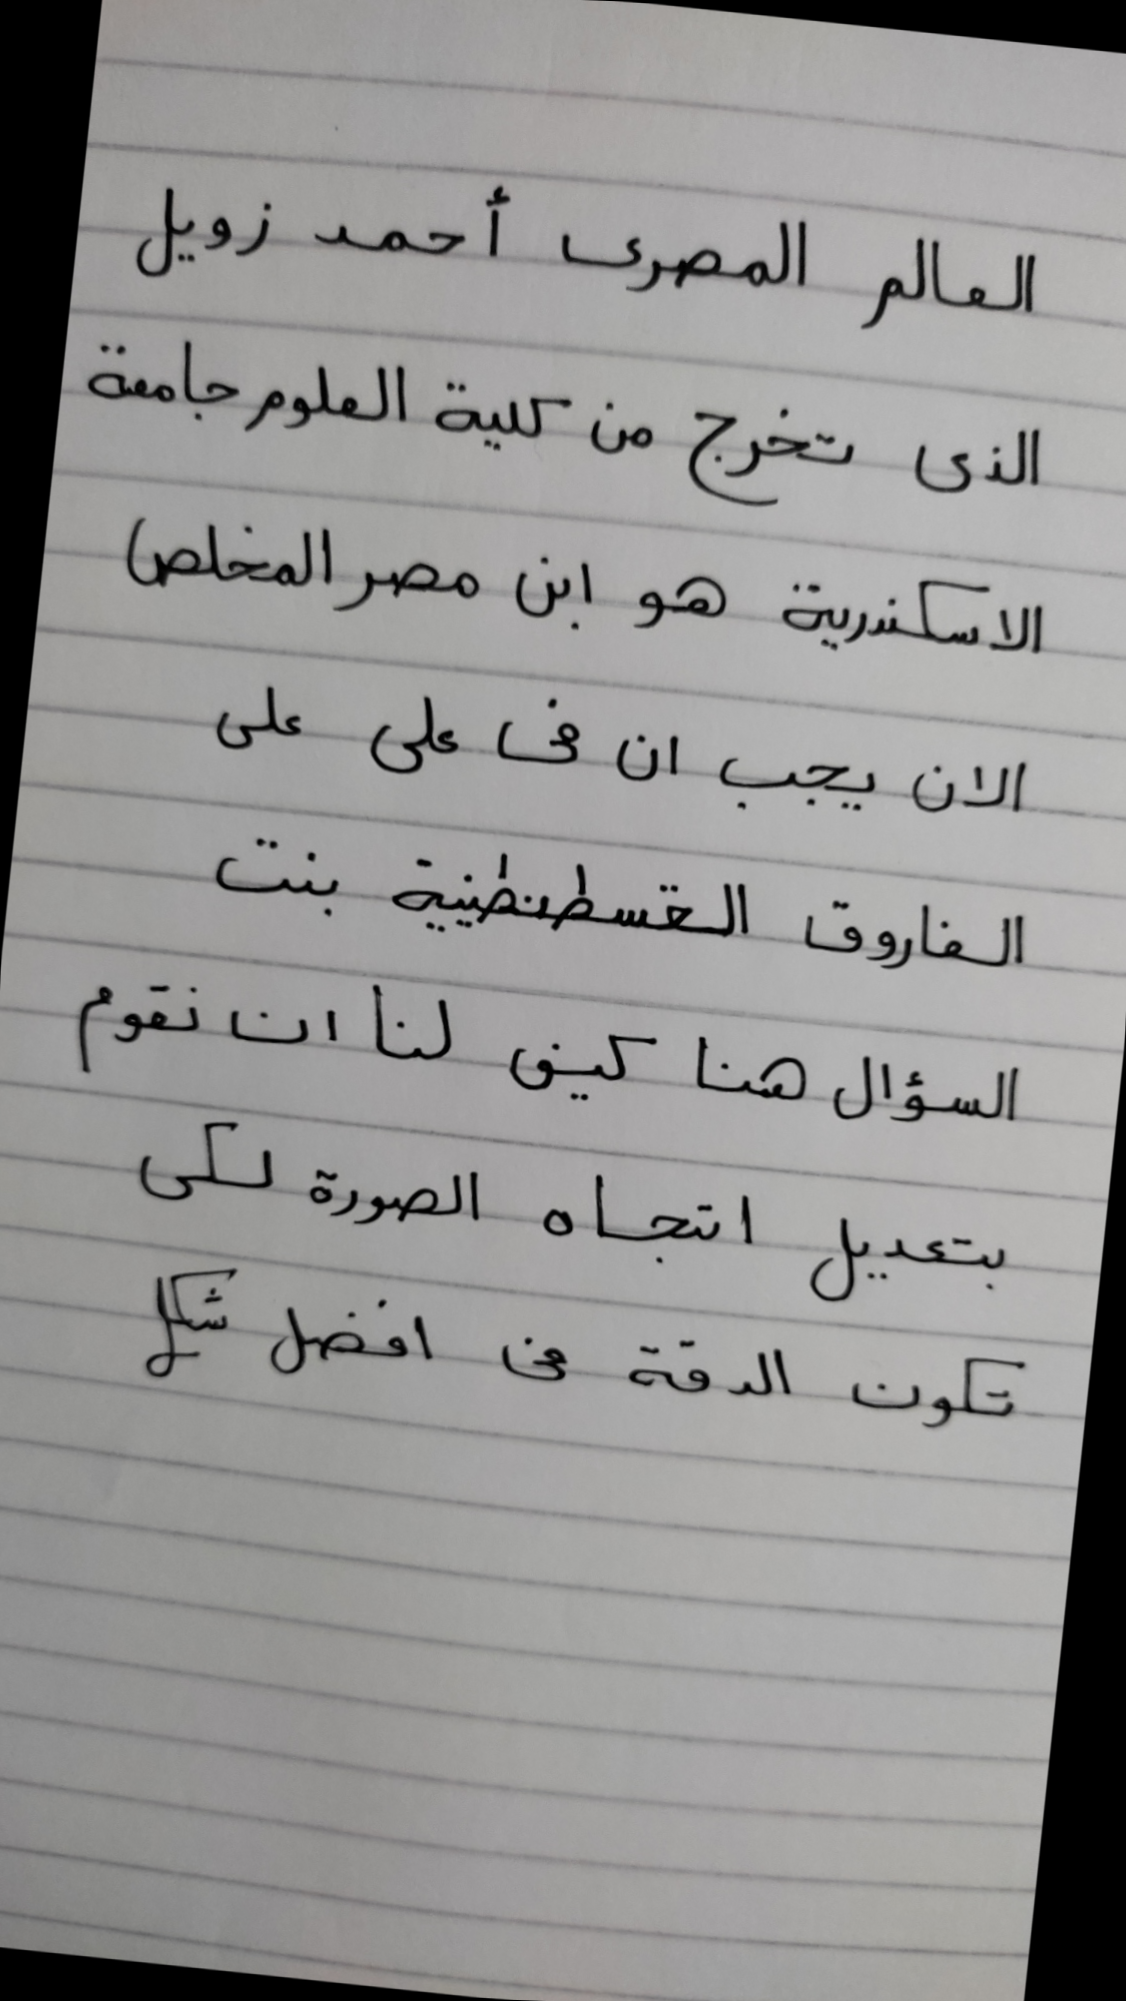 العالم المصرى أحمد زويل
الذى تخرج من كلية العلوم جامعة
الاسكندرية هو ابن مصر المخلص
الان يجب ان فى على على
الفاروق القسطنطينية بنت
السؤال هنا كيف لنا ان نقوم
بتعديل اتجاه الصورة لكى
تكون الدقة فى افضل شكل